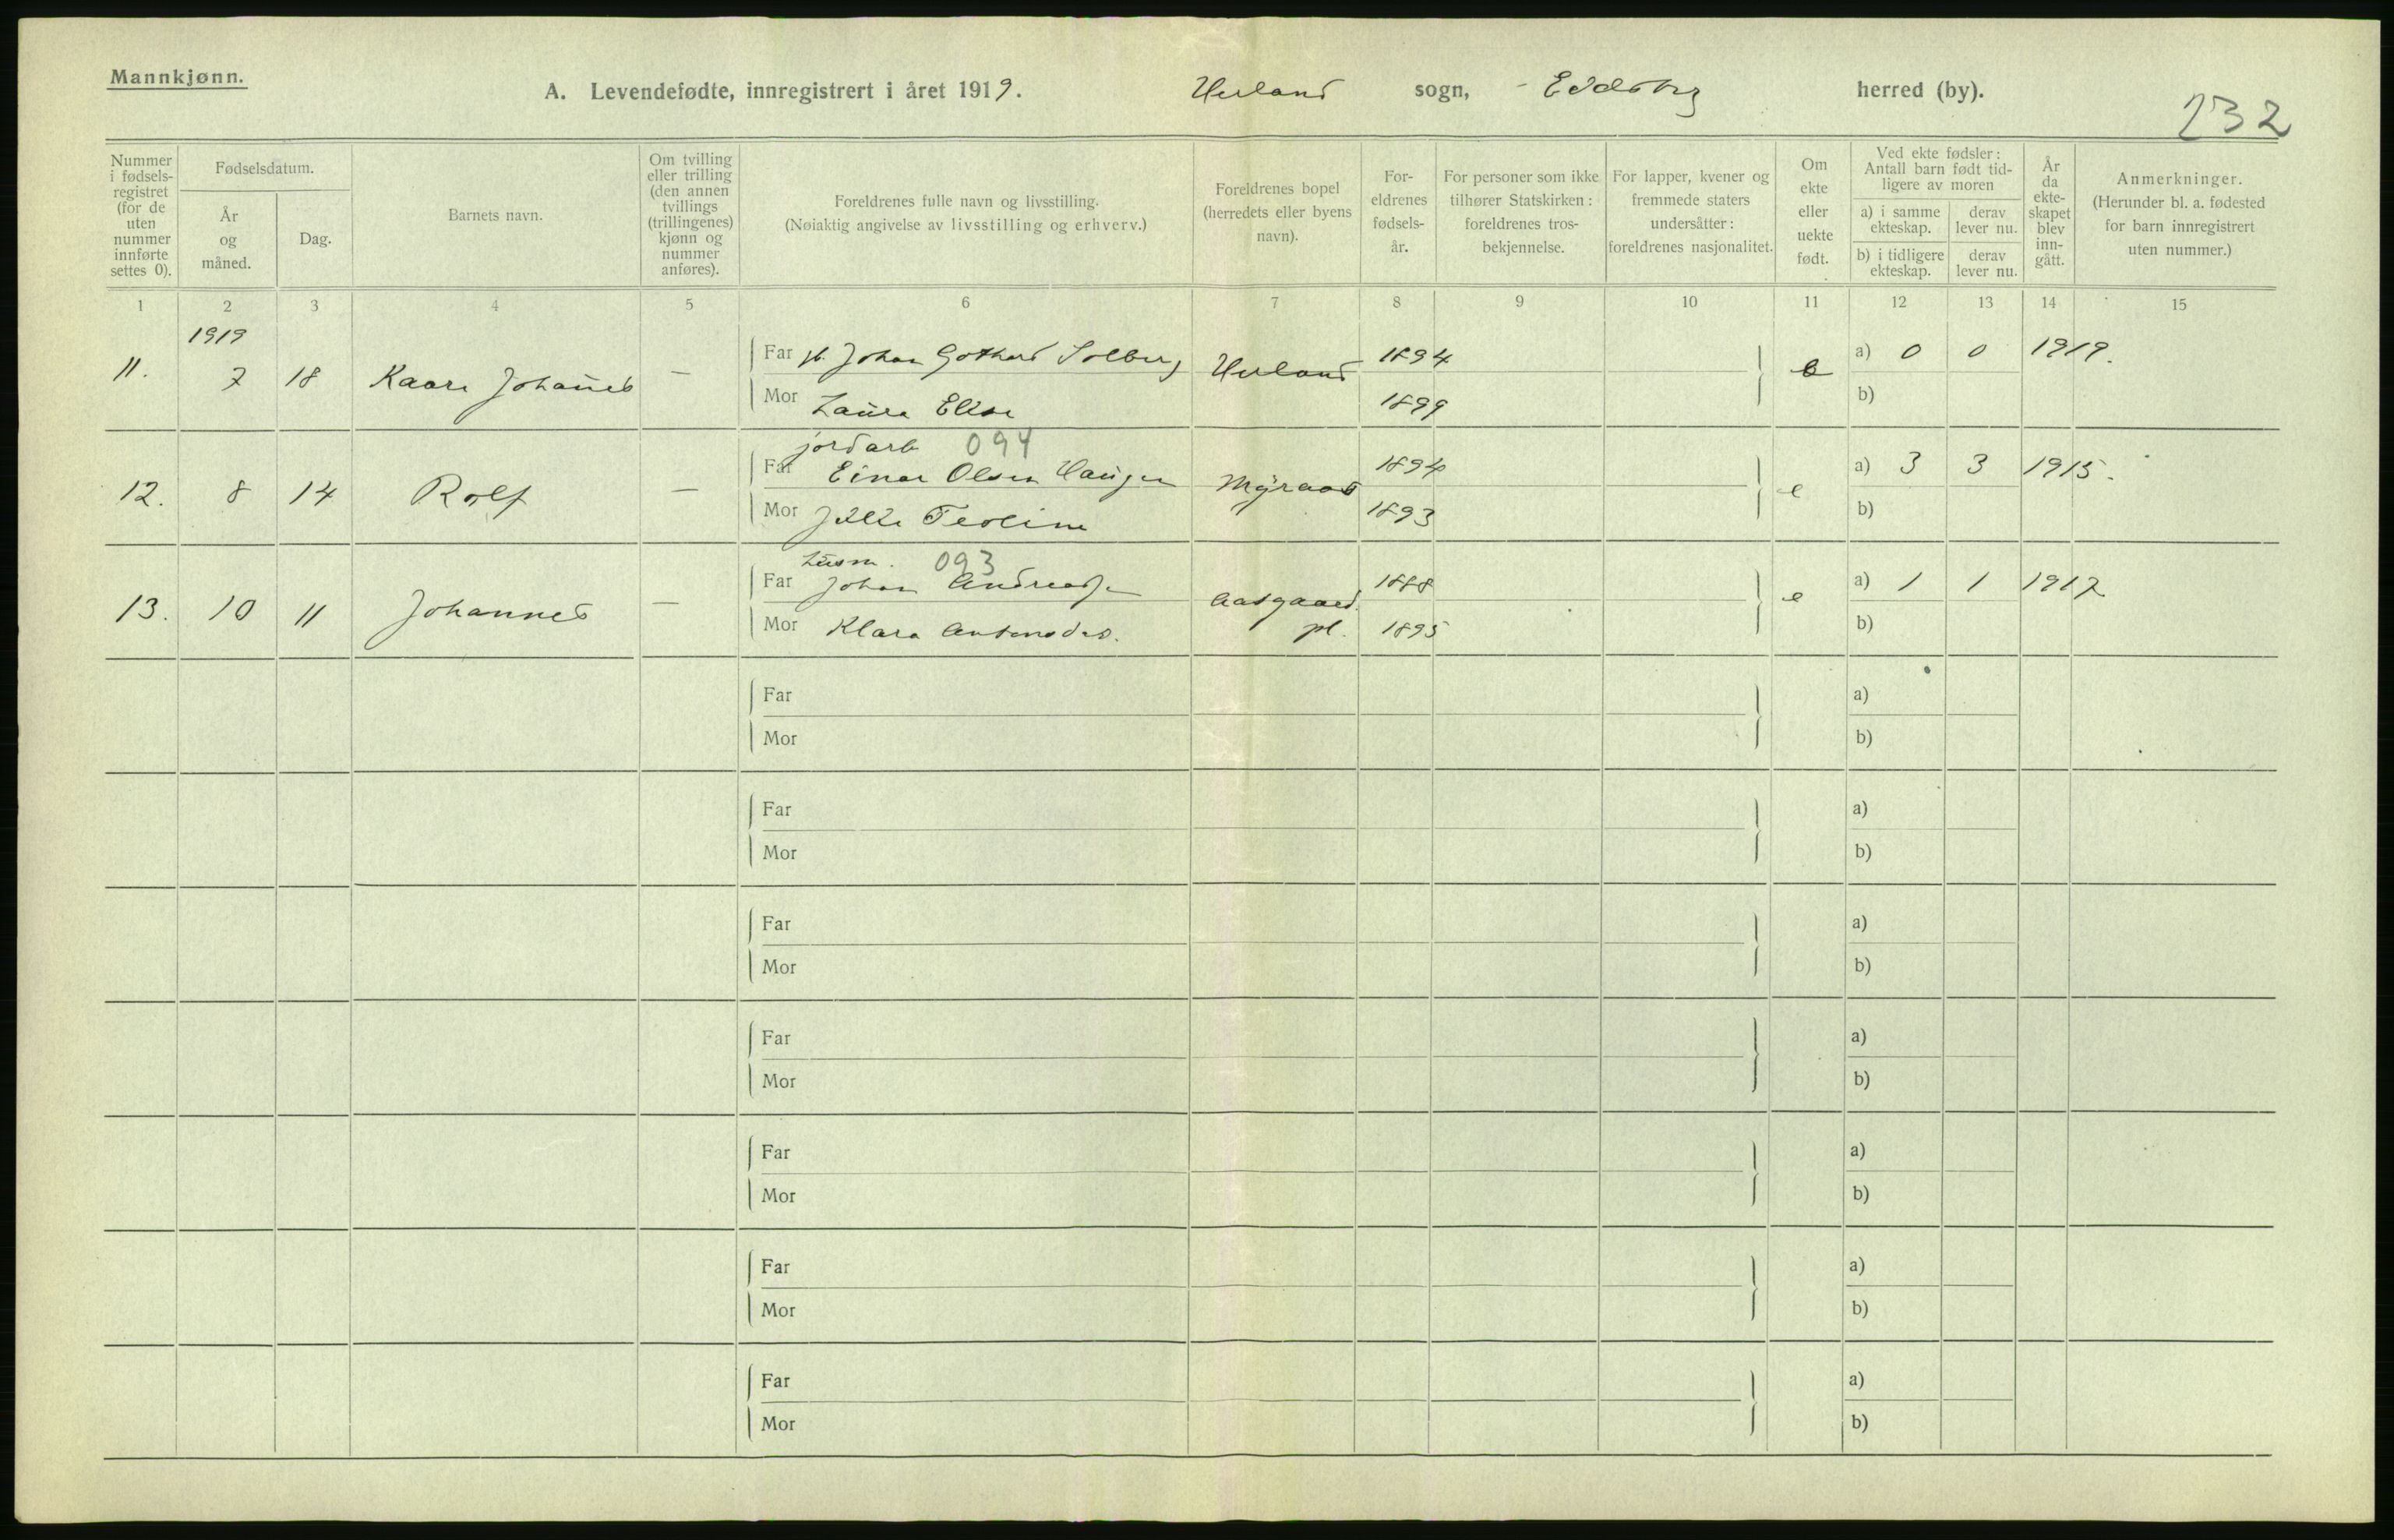 Mannkjønn.
A. Levendefødte, innregistrert i året 1919. Herland sogn, Eidsberg herred (by).
232
Nummer i fødsels-registret (for de uten nummer innførte settes 0).
Fødselsdatum.
År og måned.
Dag.
Barnets navn.
Om tvilling eller trilling (den annen tvillings (trillingenes) kjønn og nummer anføres).
Foreldrenes fulle navn og livsstilling.
(Nøiaktig angivelse av livsstilling og erhverv.)
Foreldrenes bopel (herredets eller byens navn).
For-eldrenes fødsels-år.
For personer som ikke tilhører Statskirken: foreldrenes tros-bekjennelse.
For lapper, kvener og fremmede staters undersåtter: foreldrenes nasjonalitet.
Om ekte eller uekte født.
Ved ekte fødsler: Antall barn født tid-ligere av moren
a) i samme ekteskap.
derav lever nu.
b) i tidligere ekteskap.
derav lever nu.
År da ekte-skapet blev inn-gått.
Anmerkninger.
(Herunder bl. a. fødested for barn innregistrert uten nummer.)
1 2 3 4 5 6 7 8 9 10 11 12 13 14 15
1919
11. 7 18 Kaare Johannes — Far Johan Gothard Solberg Herland 1894 e a) 0 0 1919.
Mor Laura Elise 1899 b)
jordarb 094
12. 8 14 Rolf — Far Einar Olsen Haugen 1894 e a) 3 3 1915.
Mor 1893 b)
husm. 093
13. 10 11 Johannes — Far Johan Andreassen Aasgaard pl. 1888 e a) 1 1 1917
Mor Klara Antonsdr. 1895 b)
Far a)
Mor b)
Far a)
Mor b)
Far a)
Mor b)
Far a)
Mor b)
Far a)
Mor b)
Far a)
Mor b)
Far a)
Mor b)